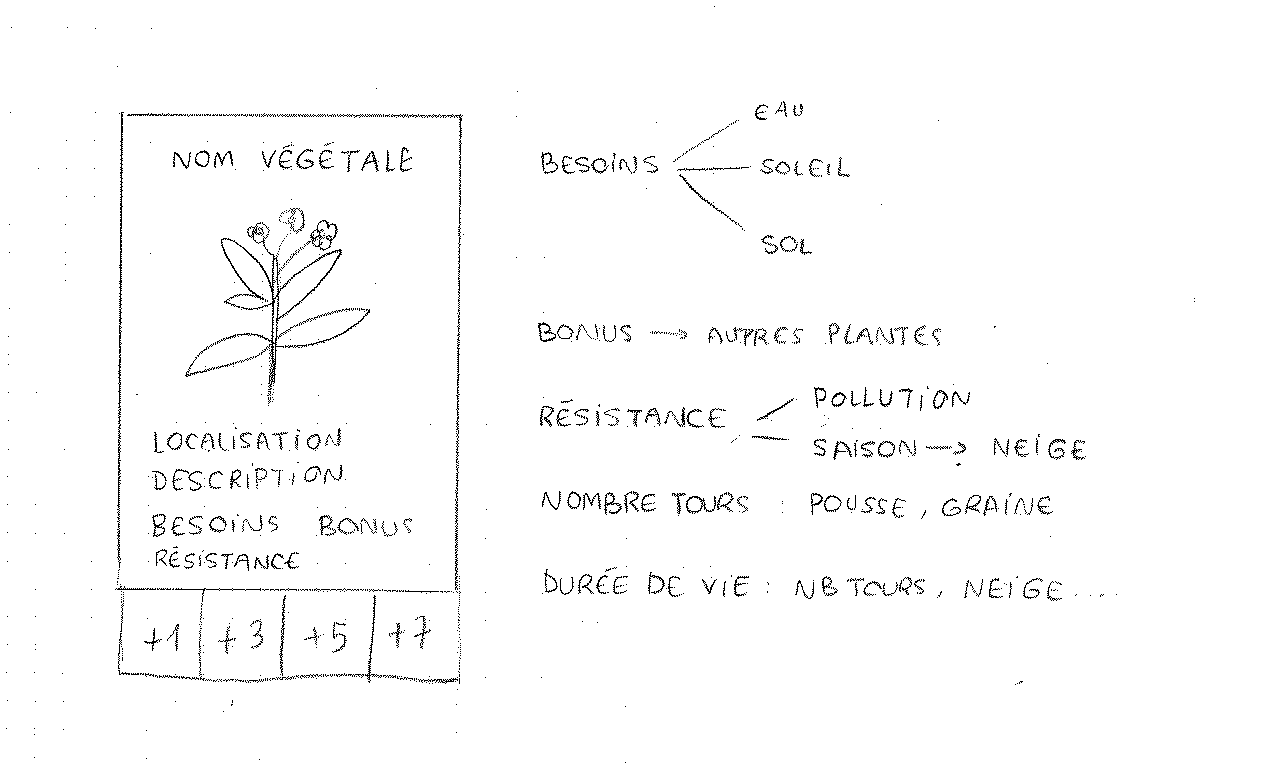 NOM VÉGÉTALE
LOCALISATION
DESCRIPTION
BESOINS BONUS
RÉSISTANCE
+1 +3 +5 +7
BESOINS
EAU
SOLEIL
SOL
BONUS → AUTRES PLANTES
RÉSISTANCE
POLLUTION
SAISON → NEIGE
NOMBRE TOURS : POUSSE, GRAINE
DURÉE DE VIE : NB TOURS, NEIGE....